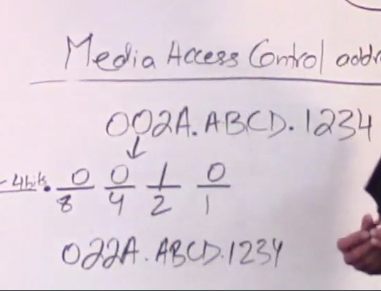 Media Access Control addr
002A.ABCD.1234
-4bits. 0 0 1 0
8 4 2 1
022A.ABCD.1234